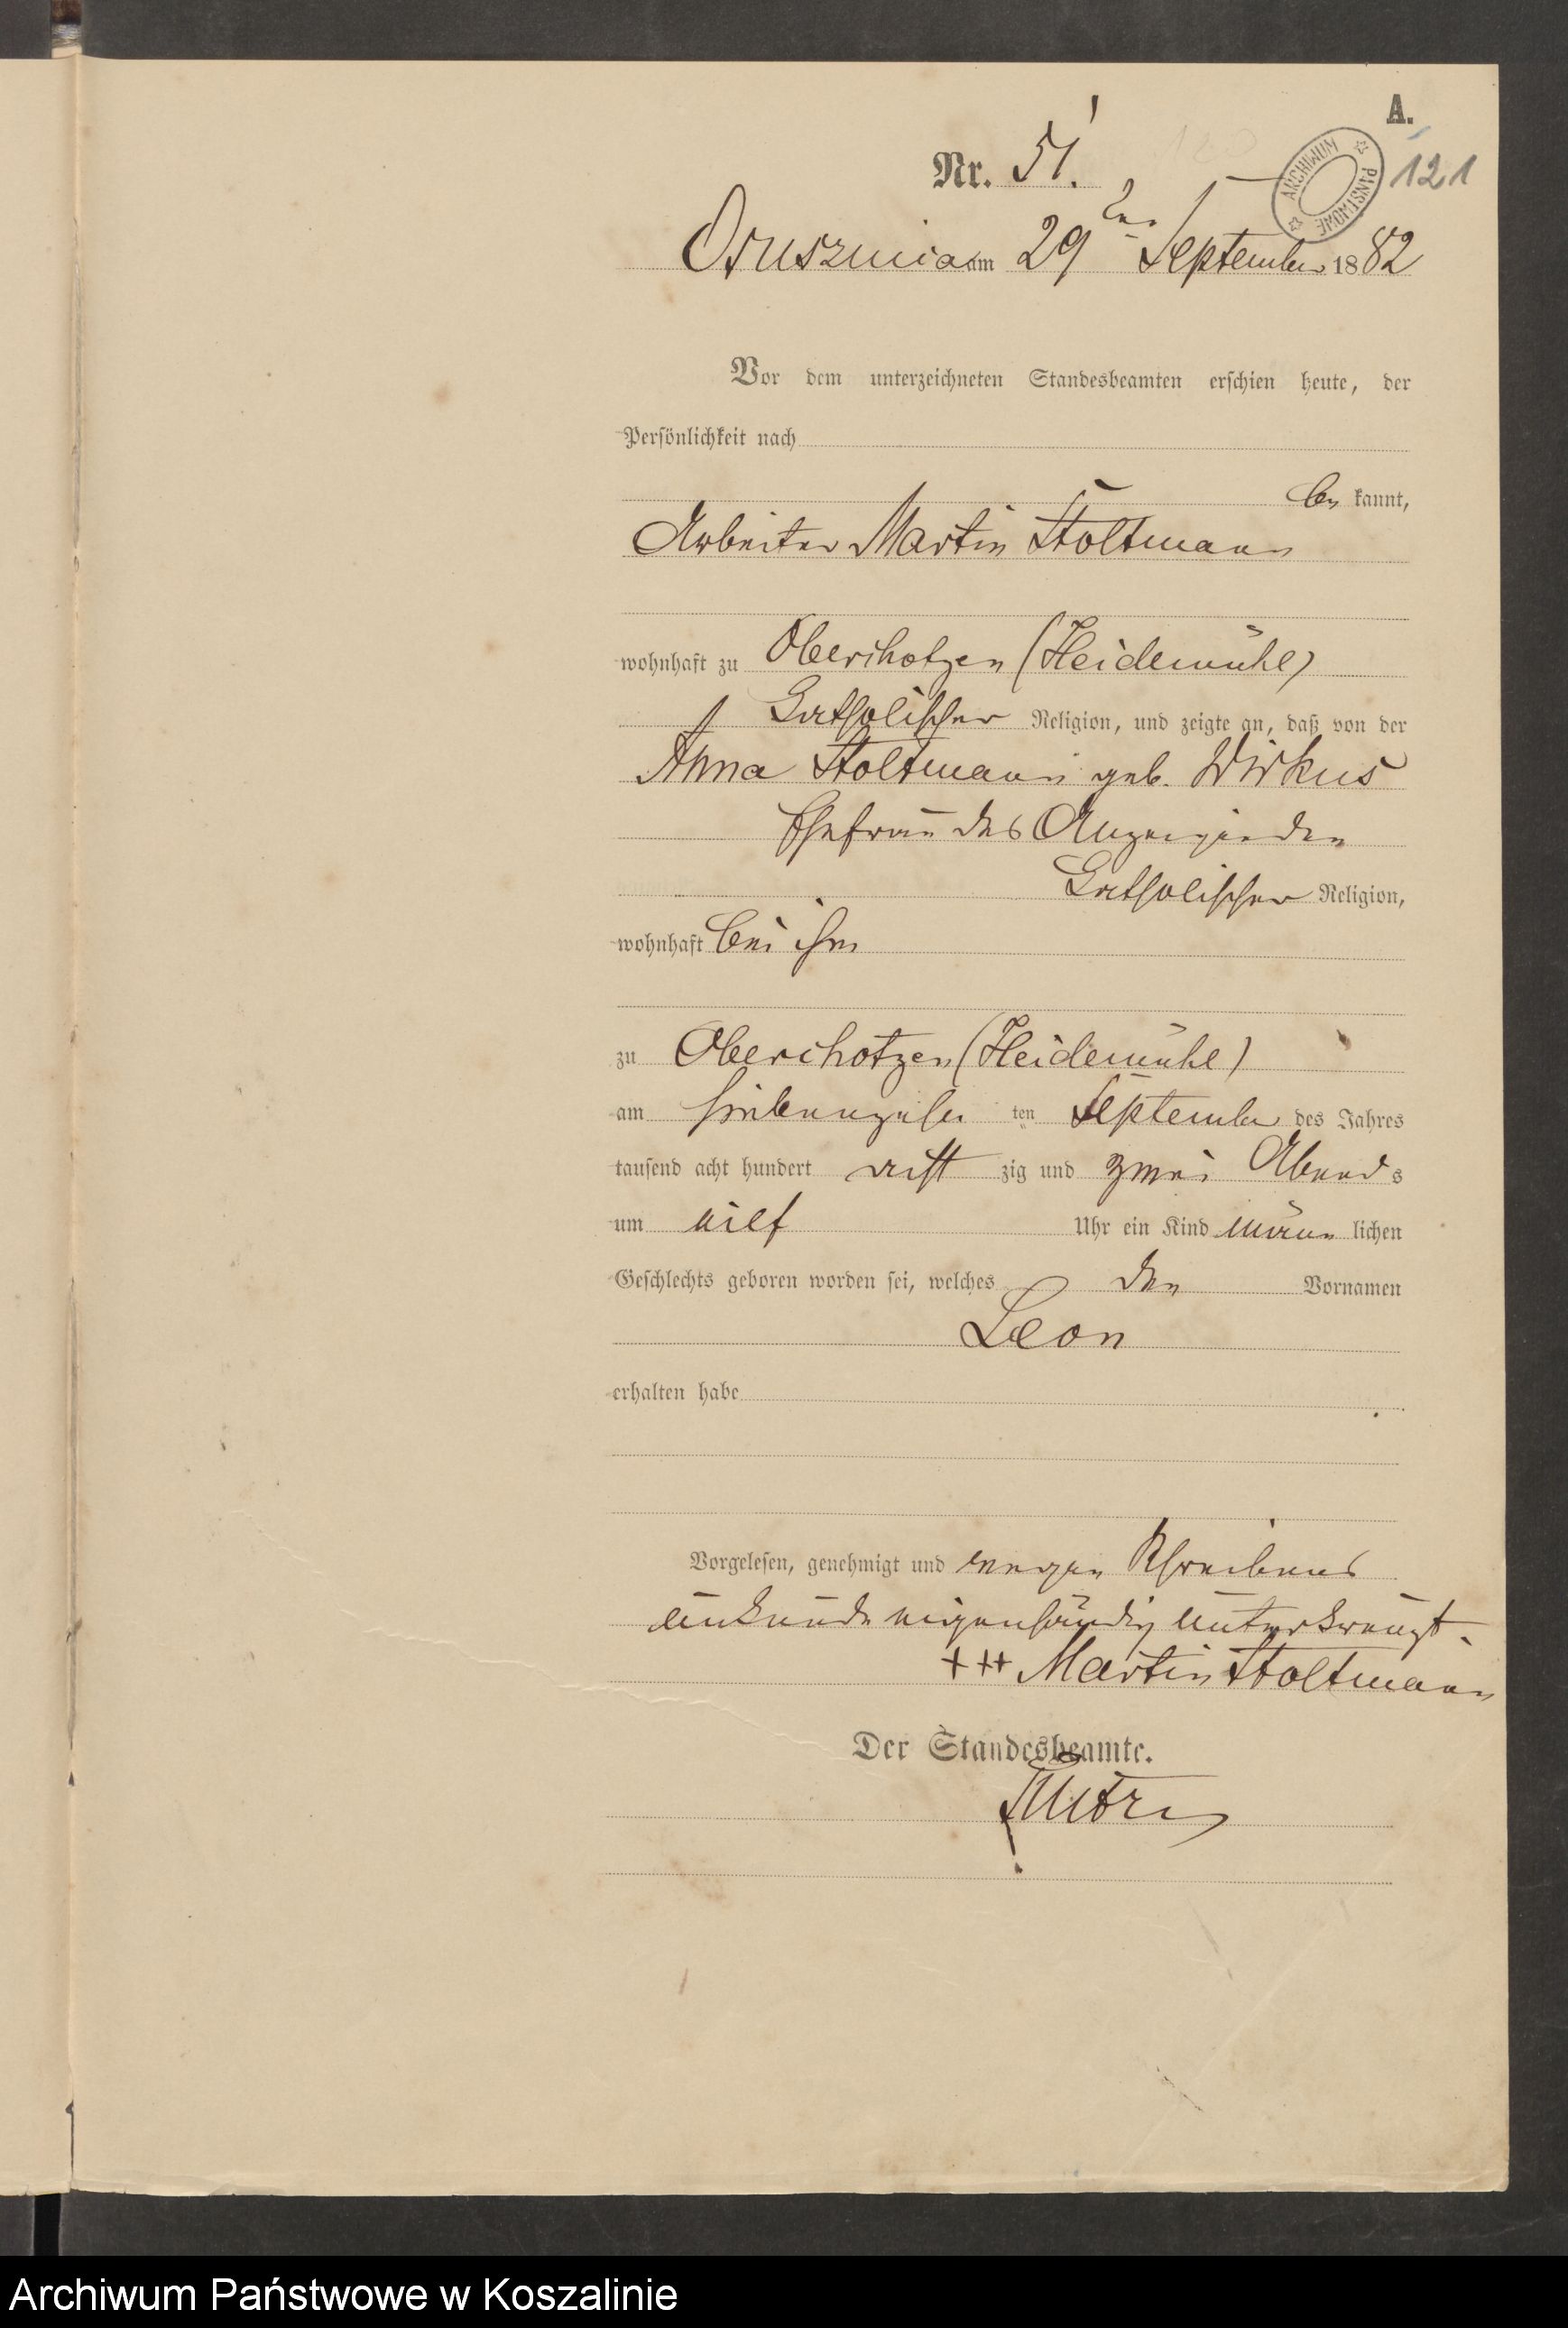 A.
Nr. 51.
ARCHIWUM PAŃSTWOWE
121
Osuszniza am 29ten September 1882
Vor dem unterzeichneten Standesbeamten erschien heute, der
Persönlichkeit nach
be kannt,
Arbeiter Martin Stoltmann
wohnhaft zu Oberchotzen (Heidemühle)
katholischer Religion, und zeigte an, daß von der
Anna Stoltmann geb. Wirkus
Ehefrau des Anzeigenden
katholischer Religion,
wohnhaft bei ihm
zu Oberchotzen (Heidemühle)
am siebenzehn ten September des Jahres
tausend acht hundert acht zig und zwei Abends
um eilf Uhr ein Kind männ lichen
Geschlechts geboren worden sei, welches den Vornamen
Leon
erhalten habe
Vorgelesen, genehmigt und wegen Schreibens
unkunde eigenhändig unterkreuzt.
+++ Martin Stoltmann
Der Standesbeamte.
Archiwum Państwowe w Koszalinie